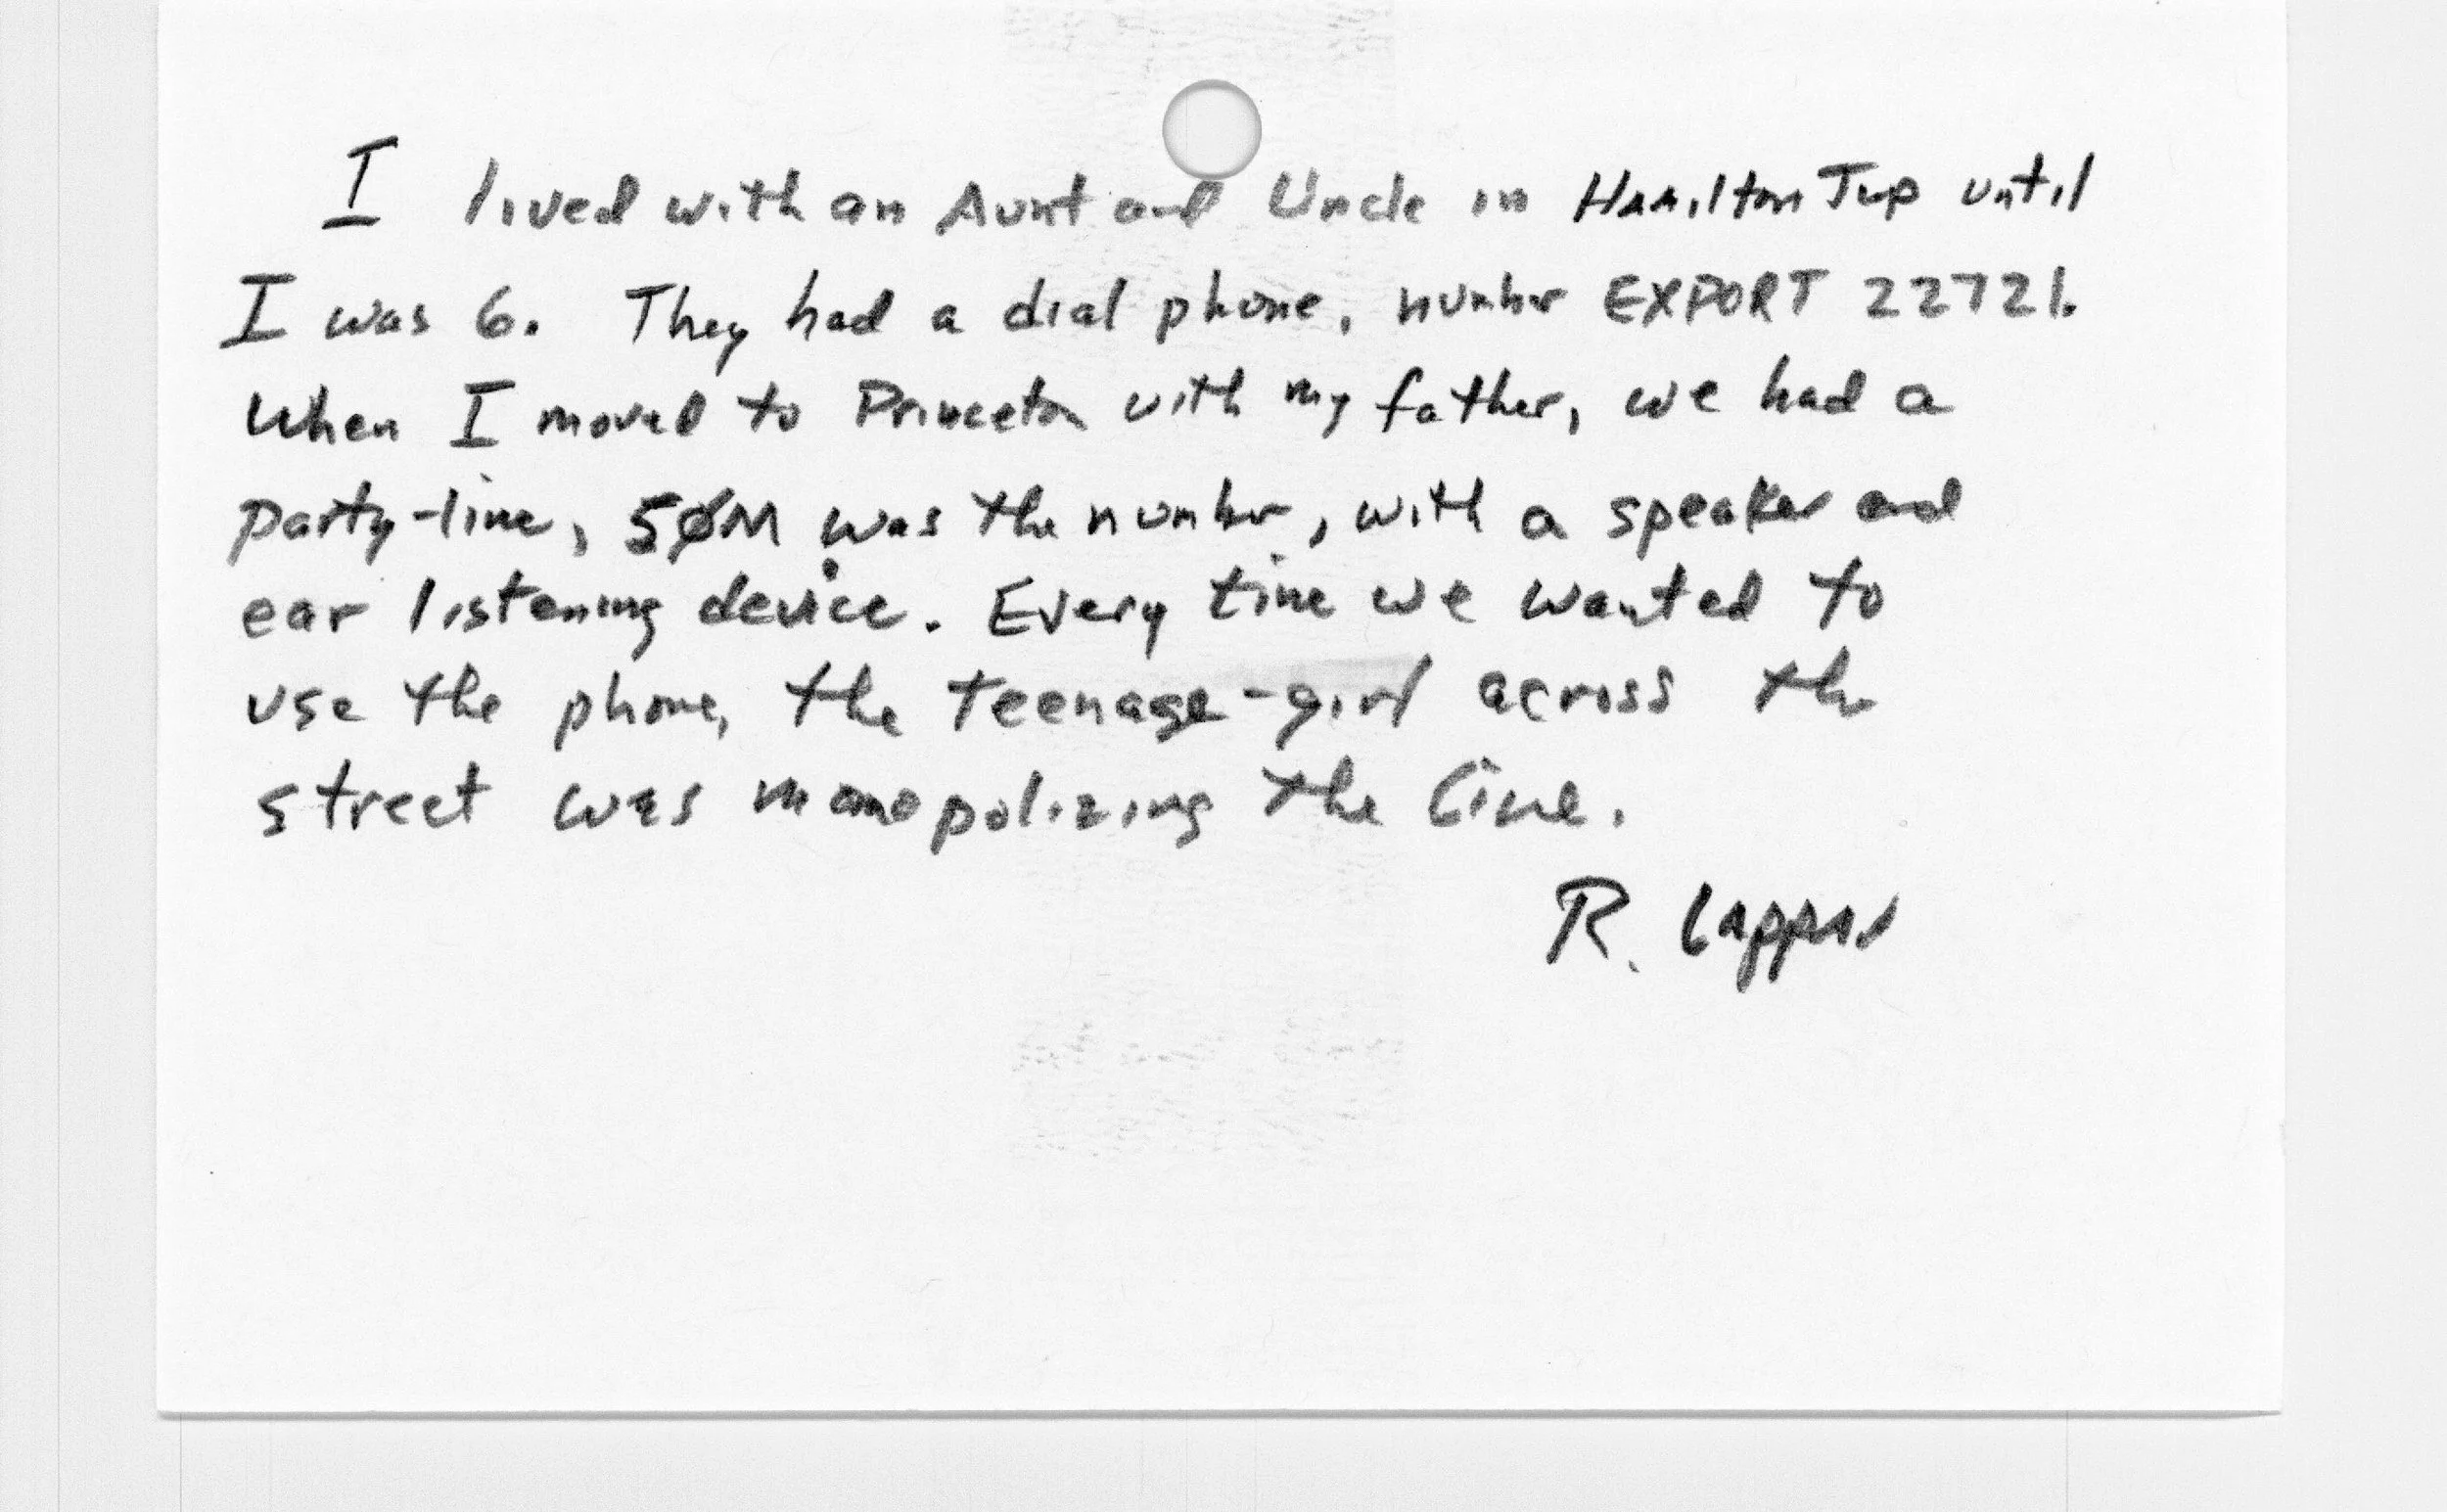 I lived with an Aunt and Uncle in Hamilton Twp until
I was 6. They had a dial phone, number EXPORT 22721.
When I moved to Princeton with my father, we had a
party-line, 5ØM was the number, with a speaker and
ear listening device. Every time we wanted to
use the phone, the teenage-girl across the
street was monopolizing the line.
R. Lappas